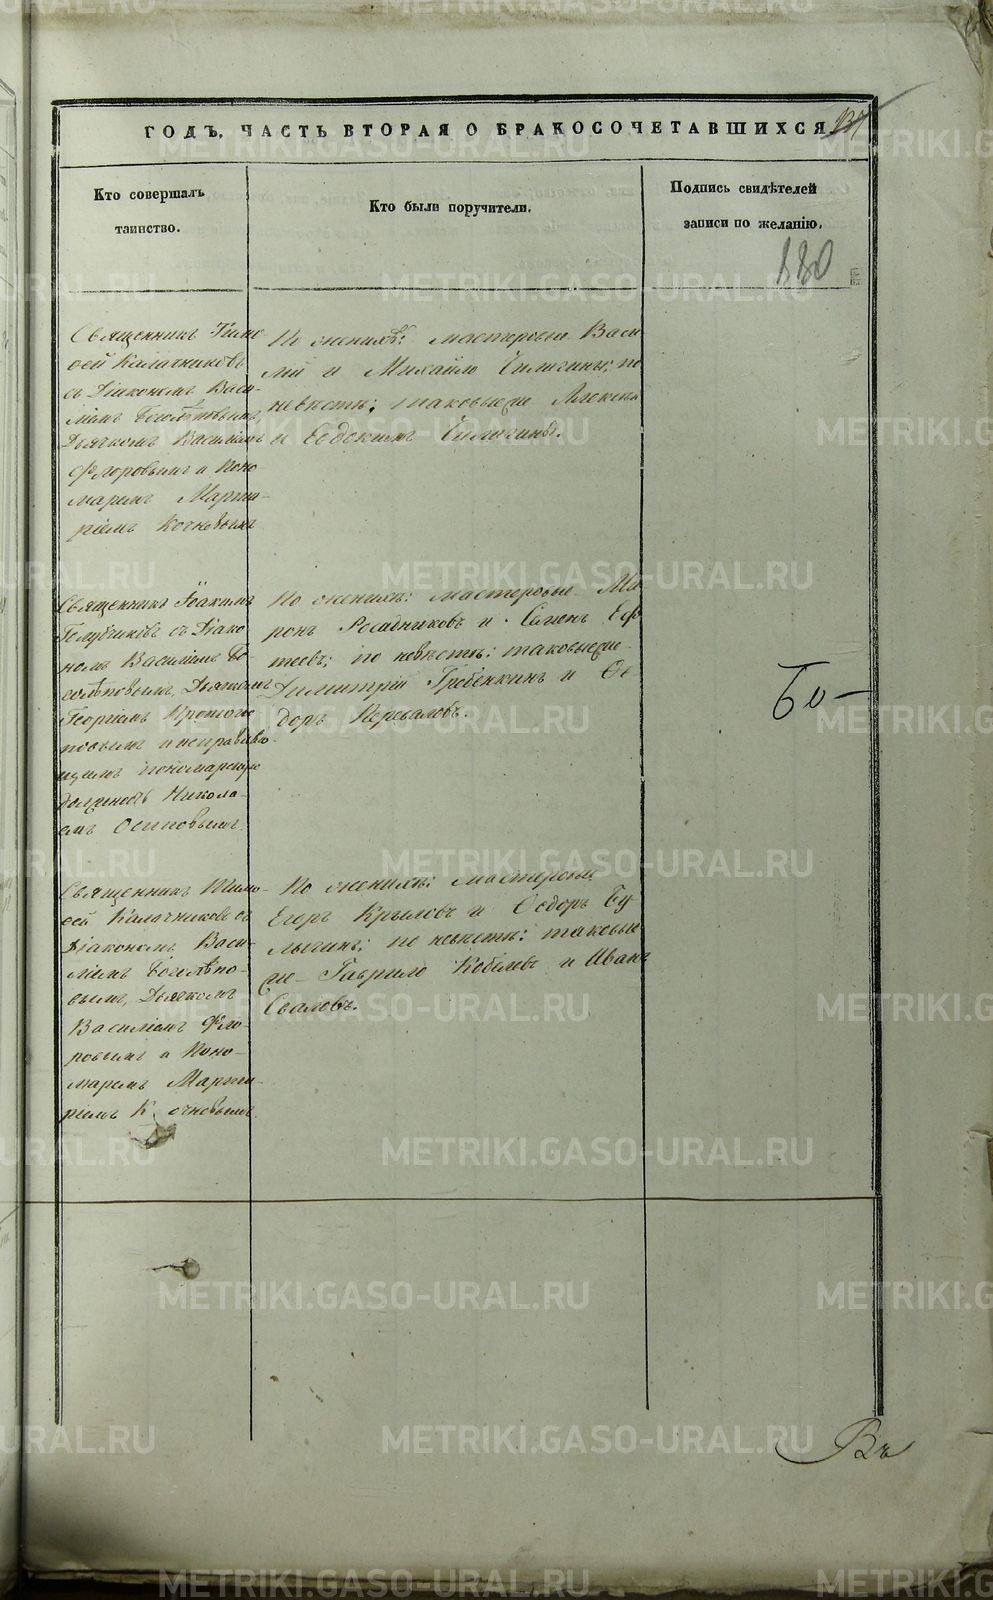 ГОДЪ, ЧАСТЬ ВТОРАЯ О БРАКОСОЧЕТАВШИХСЯ
Кто совершалъ
таинство.
Кто были поручители.
Подпись свидѣтелей
записи по желанію.
180
Священникъ Тимо
ѳей Калачниковъ
съ Діакономъ Васи-
Дьячкомъ Василіемъ
Флоровымъ и Поно
маремъ Марти-
ріемъ Кочневымъ
По женихѣ: мастеровые Васи
лій и Михайло Чиличины; по
невѣстѣ: таковыеже Алексѣй
и Евдокимъ Чиличины.
Священникъ Іоакимъ
Голубчиковъ съ Діако
номъ Василіемъ Бо-
голѣповымъ, Дьячкомъ
Георгіемъ
и исправляю-
щимъ пономарскую
должность Никола-
емъ Осиповымъ.
По женихѣ: мастеровые Ми
ронъ Росадниковъ и Семенъ
по невѣстѣ: таковыеже
Димитрій Гребенкинъ и Ѳе
доръ Перваловъ.
Бо-
Священникъ Тимо-
ѳей Калачниковъ съ
Діакономъ Васи-
ліемъ Боголѣпо-
вымъ, Дьячкомъ
Василіемъ Фло-
ровымъ и Поно-
маремъ Марти-
ріемъ Кочневымъ.
По женихѣ: мастеровые
Егоръ Крыловъ и Ѳедоръ Бу
лыгинъ; по невѣстѣ: таковые
же Гаврило Кобелевъ и Иванъ
Сваловъ.
Въ
METRIKI.GASO-URAL.RU